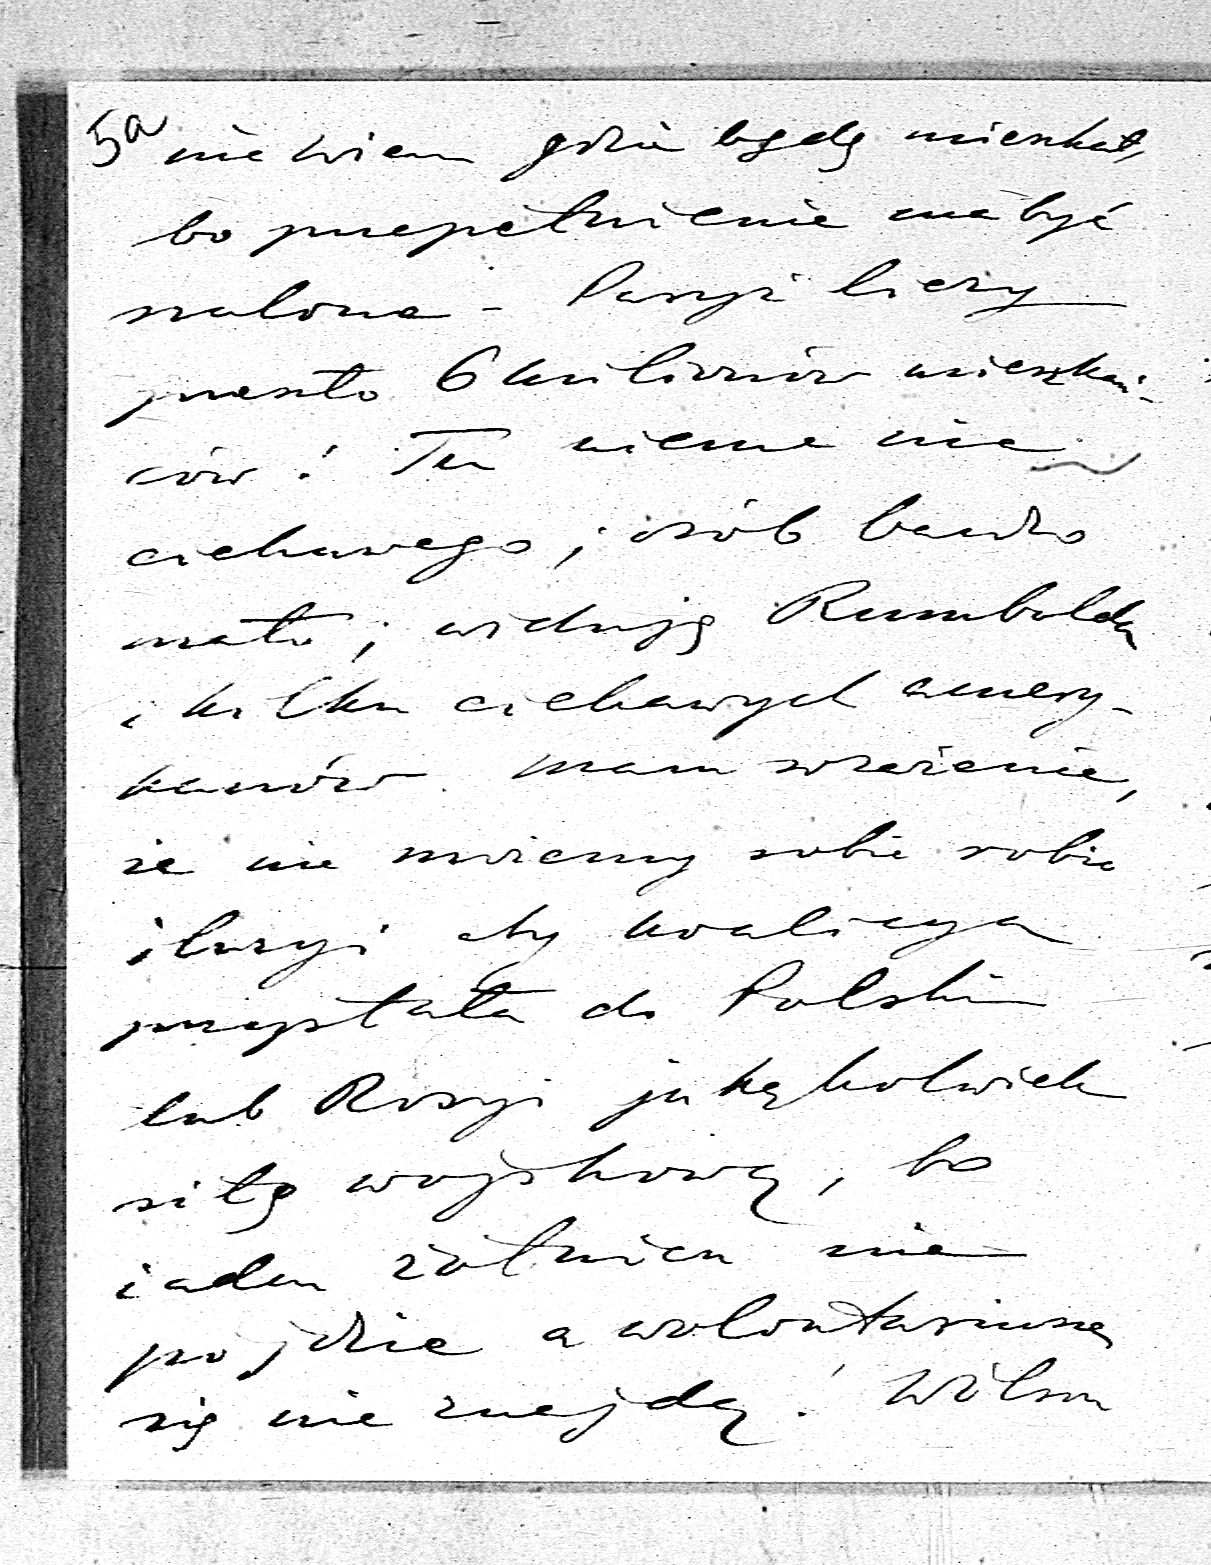 5a nie wiem gdzie będę mieszkał,
bo przepełnienie ma być
szalone - Paryż liczy
przeszło 6 milionów mieszkań-
ców! Tu niema nic
ciekawego; osób bardzo
mało; widuję Rumbolda
i kilku ciekawych amery-
kanów. Mam wrażenie,
że nie możemy sobie robić
iluzyi aby koalicya
przysłała do Polski
lub Rosyi jakąkolwiek
siłę wojskową, bo
żaden żołnierz nie
pojdzie a wolontariusze
się nie znajdą! Wilson